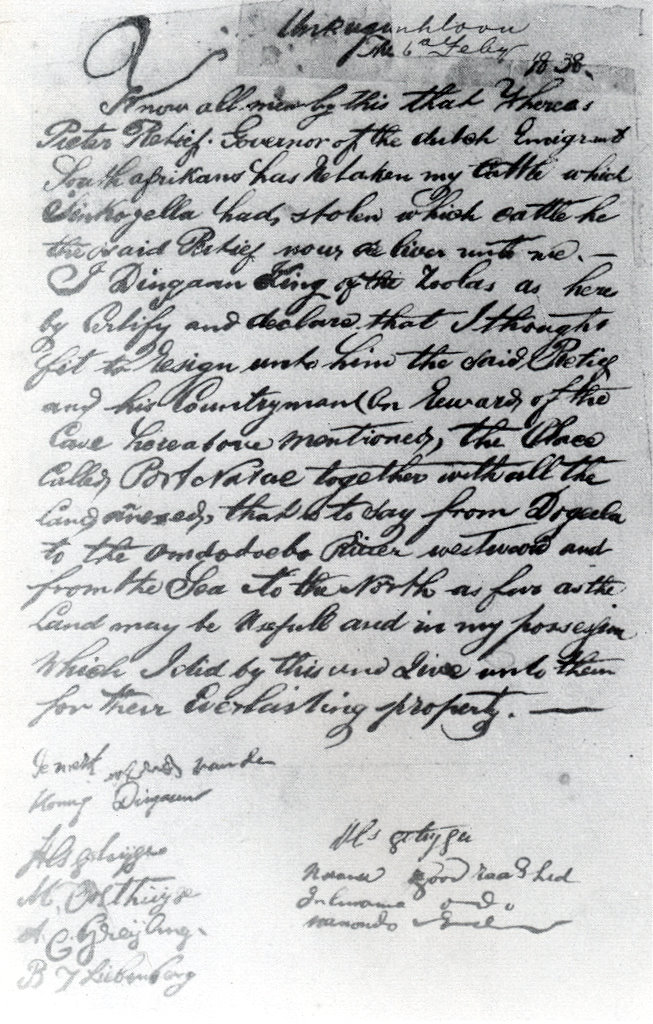 Unkuginhloou
the 6th Feby
1838.
Know all men by this that Whereas
Pieter Retief. Governor of the dutch Emigrant
South afrikans has Retaken my Cattle which
Sinkogella had, stolen which cattle he
the said Retief now deliver unto me. —
I Dingaan King of the Zoolas as here
by Certify and declare that I thought
fit to Resign unto him the said, Retief
and his Countryman (on Reward, of the
Case hereabove mentioned, the Place
Called, Port Natal together with all the
Land annexed, that is to say from Dogeela
to the Omsoboebo River westward and
from the Sea to the North as far as the
Land may be Usefull and in my possession
Which I did by this and Give unto them
for their Everlasting property. —
de merk van den
Koning Dingaan
Als getuyge
M. Oosthuyse
A. C. Greyling.
B J Liebenberg
Als getuyge
Nwara groot raadslid
Juliwania do.
Manondo